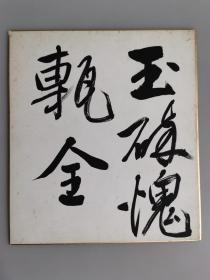 玉砕愧
甎全